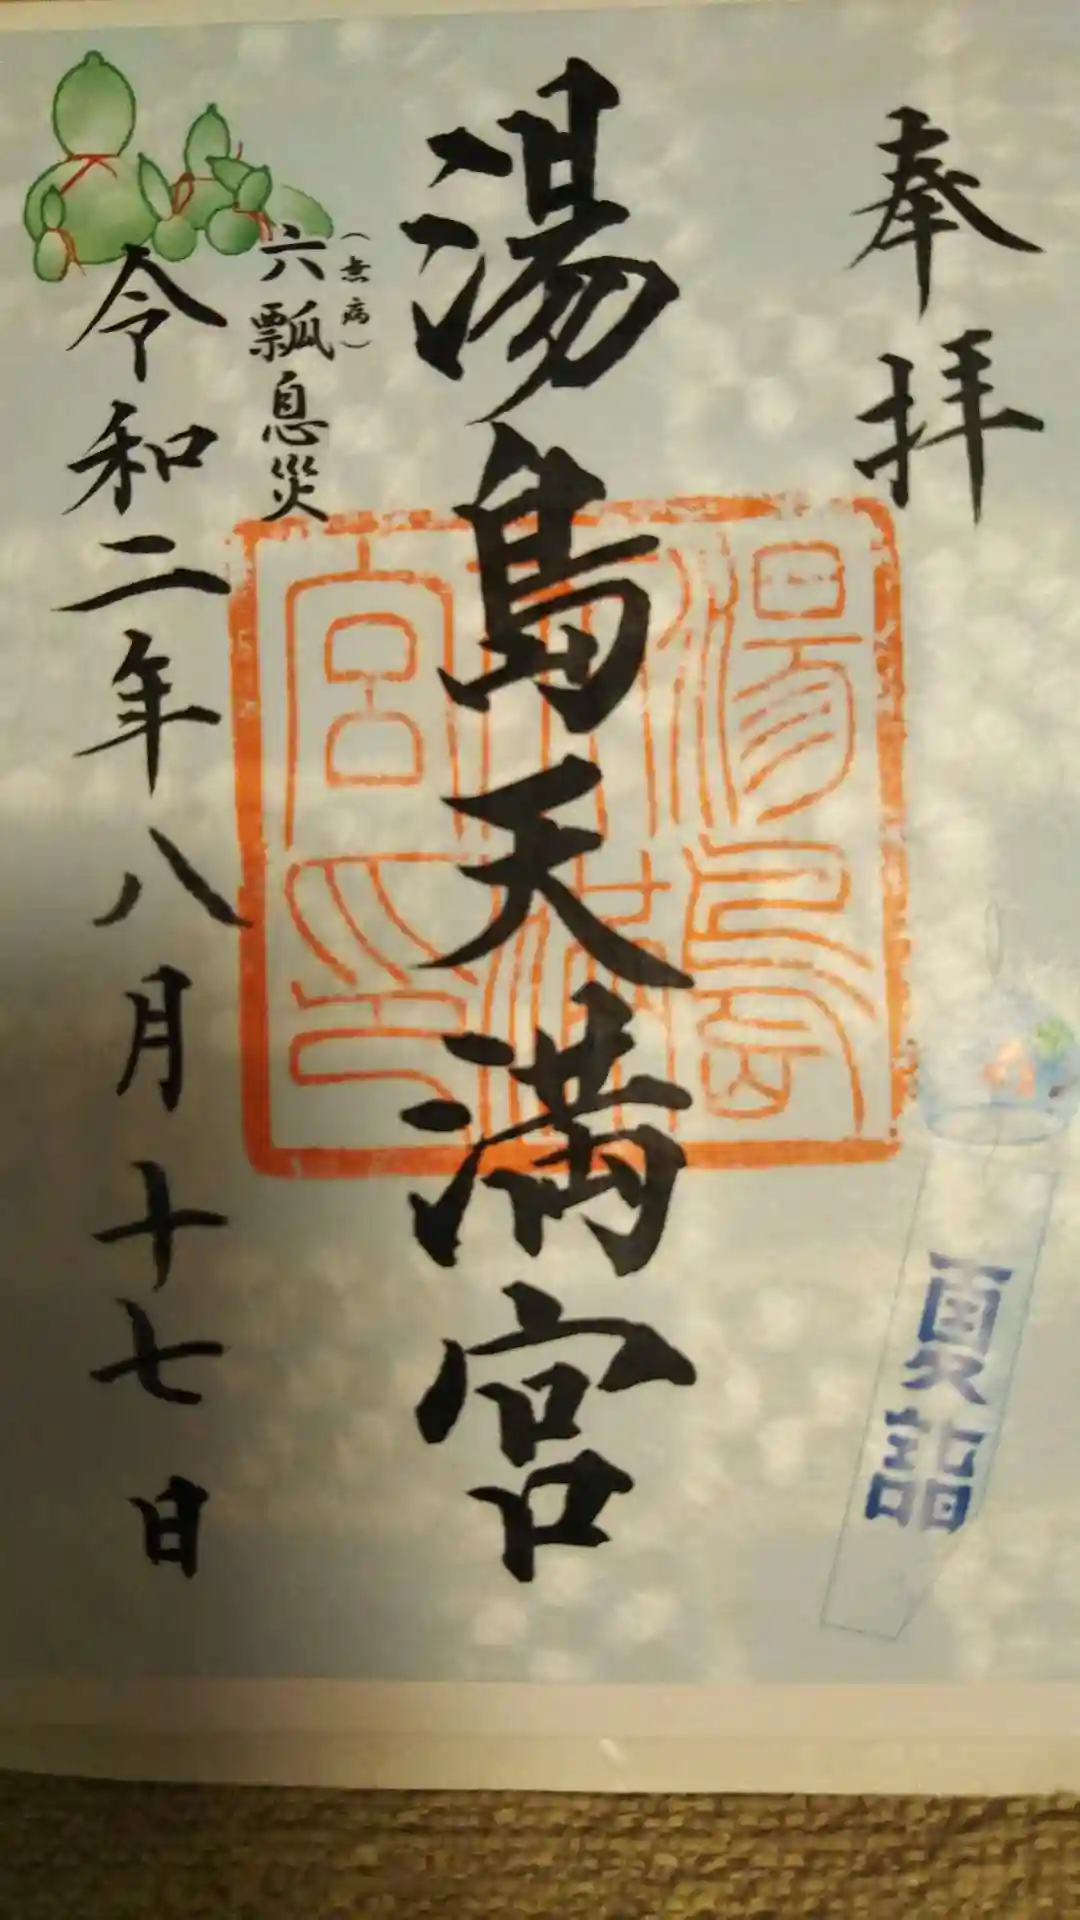 奉拝
夏詣
湯島天満宮
湯島天満宮印
(無病)
六瓢息災
令和二年八月十七日